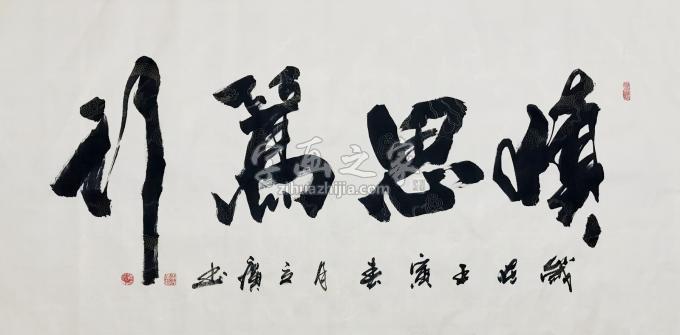 慎思篤行
歲時壬寅春月立廣書
字画之家
zihuazhijia.com